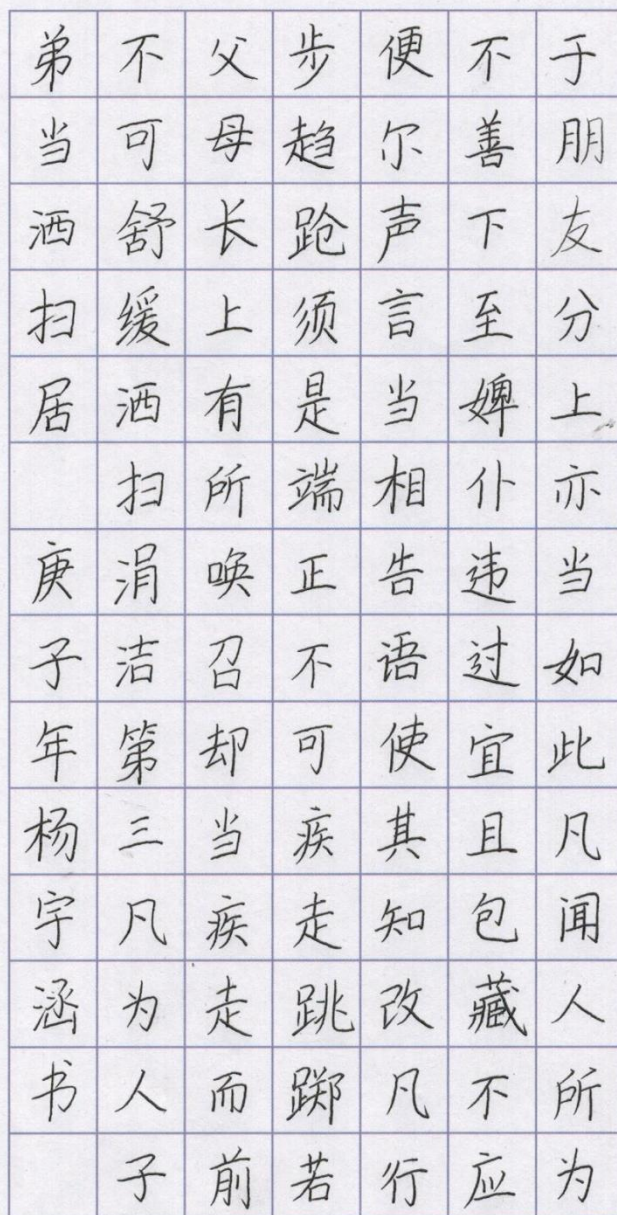 于朋友分上亦当如此凡闻人所为
不善下至婢仆违过宜且包藏不应
便尔声言当相告语使其知改凡行
步趋跄须是端正不可疾走跳踯若
父母长上有所唤召却当疾走而前
不可舒缓洒扫涓洁第三凡为人子
弟当洒扫居 庚子年杨宇涵书